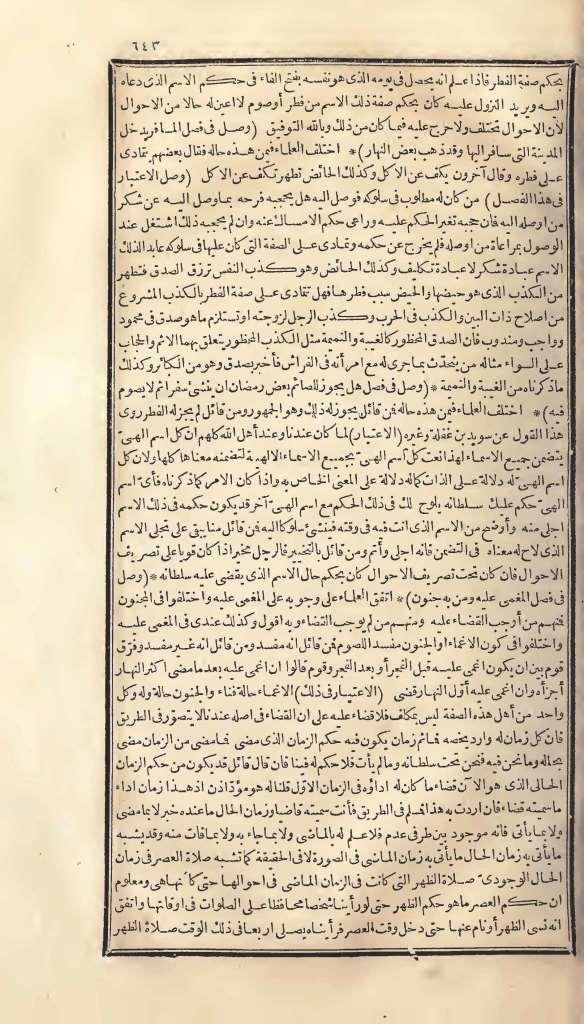 ٦٤٣
بحكم صفة الفطر فاذا علم انه يحصل فى يومه الذى هو نفسه بفتح الفاء فى حكم الاسم الذى دعاه
اليه ويريد النزول عليه كان بحكم صفة ذلك الاسم من فطر أو صوم لا اعين له حالا من الاحوال
لان الاحوال تختلف ولا حرج عليه فيما كان من ذلك وبالله التوفيق (وصل فى فصل المسافر يدخل
المدينة التى سافر اليها وقد ذهب بعض النهار)* اختلف العلماء فيمن هذه حاله فقال بعضهم يتمادى
على فطره وقال آخرون يكف عن الاكل وكذلك الحائض تطهر تكف عن الاكل (وصل الاعتبار
فى هذا الفصل) من كان له مطلوب فى سلوكه فوصل اليه هل يحجبه فرحه بما وصل اليه عن شكر
من اوصله اليه فان حجبه تغير الحكم عليه وراعى حكم الامساك عنه وان لم يحجبه ذلك اشتغل عند
الوصول بمراعاة من اوصله فلم يخرج عن حكمه وتمادى على الصفة التى كان عليها فى سلوكه عابدا لذلك
الاسم عبادة شكر لا عبادة تكليف وكذلك الحائض وهو كذب النفس ترزق الصدق فتطهر
من الكذب الذى هو حيضها والحيض سبب فطرها فهل تتمادى على صفة الفطر بالكذب المشروع
من اصلاح ذات البين والكذب فى الحرب وكذب الرجل لزوجته او تستلزم ما هو صدق فى محمود
وواجب ومندوب فان الصدق المحظور كالغيبة والنميمة مثل الكذب المحظور يتعلق بهما الاثم والحجاب
على السواء مثاله من يتحدّث بما جرى له مع امرأته فى الفراش فأخبر بصدق وهو من الكبائر وكذلك
ما ذكرناه من الغيبة والنميمة *(وصل فى فصل هل يجوز للصائم بعض رمضان ان ينشئ سفرا ثم لا يصوم
فيه)* اختلف العلماء فيمن هذه حاله فمن قائل يجوز له ذلك وهو الجمهور ومن قائل لم يجز له الفطر روى
هذا القول عن سويد بن غفلة وغيره (الاعتبار) لما كان عندنا وعند أهل الله كلهم ان كل اسم الهىّ
يتضمن جميع الاسماء لهذا نعت كل اسم الهىّ بجميع الاسماء الالهية لتضمنه معناها كلها ولان كل
اسم الهىّ له دلالة على الذات كما له دلالة على المعنى الخاص به واذا كان الامر كما ذكرناه فأىّ اسم
الهىّ حكم عليك سلطانه يلوح لك فى ذلك الحكم مع اسم الهىّ آخر قد يكون حكمه فى ذلك الاسم
اجلى منه وأوضح من الاسم الذى انت فيه فى وقته فينشئ سلوكا اليه فمن قائل منا يبقى على تجلى الاسم
الذى لاح له معناه فى التضمن فانه اجلى وأتم ومن قائل بالتخيير فالرجل مخير اذا كان قويا على تصريف
الاحوال فان كان تحت تصريف الاحوال كان بحكم حال الاسم الذى يقضى عليه سلطانه *(وصل
فى فصل المغمى عليه ومن به جنون)* اتفق العلماء على وجوبه على المغمى عليه واختلفوا فى المجنون
فمنهم من أوجب القضاء عليه ومنهم من لم يوجب القضاء وبه اقول وكذلك عندى فى المغمى عليه
واختلفوا فى كون الاغماء والجنون مفسد اللصوم فمن قائل انه مفسد ومن قائل انه غير مفسد وفرّق
قوم بين ان يكون اغمى عليه قبل الفجر أو بعد الفجر وقوم قالوا ان اغمى عليه بعد ما مضى اكثر النهار
أجزأه وان اغمى عليه أوّل النهار قضى (الاعتبار فى ذلك) الاغماء حالة فناء والجنون حالة وله وكل
واحد من أهل هذه الصفة ليس بمكلف فلا قضاء عليه على ان القضاء فى اصله عندنا لا يتصوّر فى الطريق
فان كل زمان له وارد يخصه فما ثم زمان يكون فيه حكم الزمان الذى مضى فما مضى من الزمان مضى
بحاله وما نحن فيه فنحن تحت سلطانه وما لم يأت فلا حكم له فينا فان قال قائل قد يكون من حكم الزمان
الحالى الذى هو الآن قضاء ما كان له اداؤه فى الزمان الاوّل قلنا له هو مؤدّ اذن اذ هذا زمان اداء
ما سميته قضاء فان اردت به هذا فمسلم فى الطريق فأنت سميته قاضيا وزمان الحال ما عنده خبر لا بما مضى
ولا بما يأتى فانه موجود بين طرفى عدم فلا علم له بالماضى ولا بما جاء به ولا بما فات منه وقد يشبه
ما يأتى به زمان الحال ما يأتى به زمان الماضى فى الصورة لا فى الحقيقة كما تشبه صلاة العصر فى زمان
الحال الوجودىّ صلاة الظهر التى كانت فى الزمان الماضى فى احوالها حتى كأنها هى ومعلوم
ان حكم العصر ما هو حكم الظهر حتى لو رأينا شخصا محافظا على الصلوات فى اوقاتها واتفق
انه نسى الظهر أو نام عنها حتى دخل وقت العصر فرأيناه يصلى اربعا فى ذلك الوقت صلاة الظهر